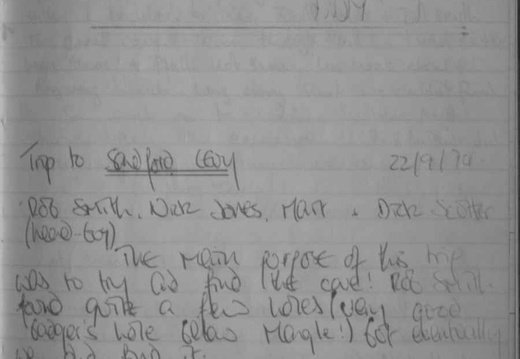 Trip to Sandford Levy 22/9/74
Rob Smith, Nick Jones, Mart & Dick Scotter
(head-boy)
The main purpose of this trip
was to try and find the cave! Rob Smith
found quite a few holes (very good
badgers hole below Mangle!) but eventually
we did find it.